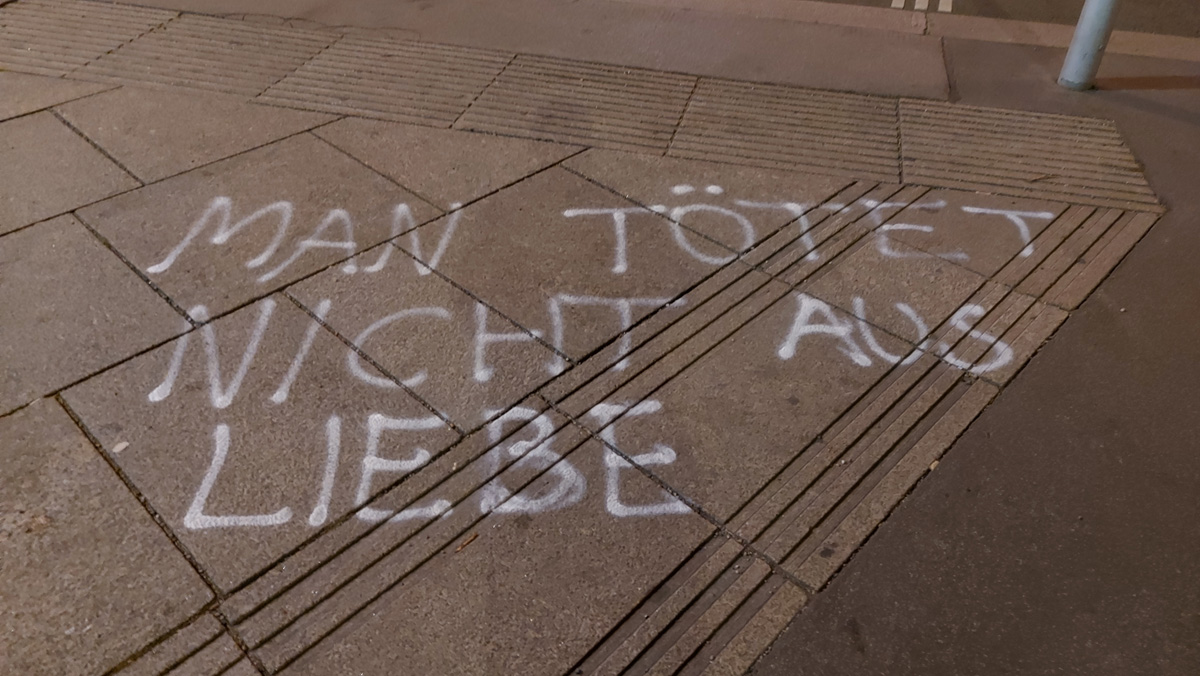 MAN TÖTET
NICHT AUS
LIEBE